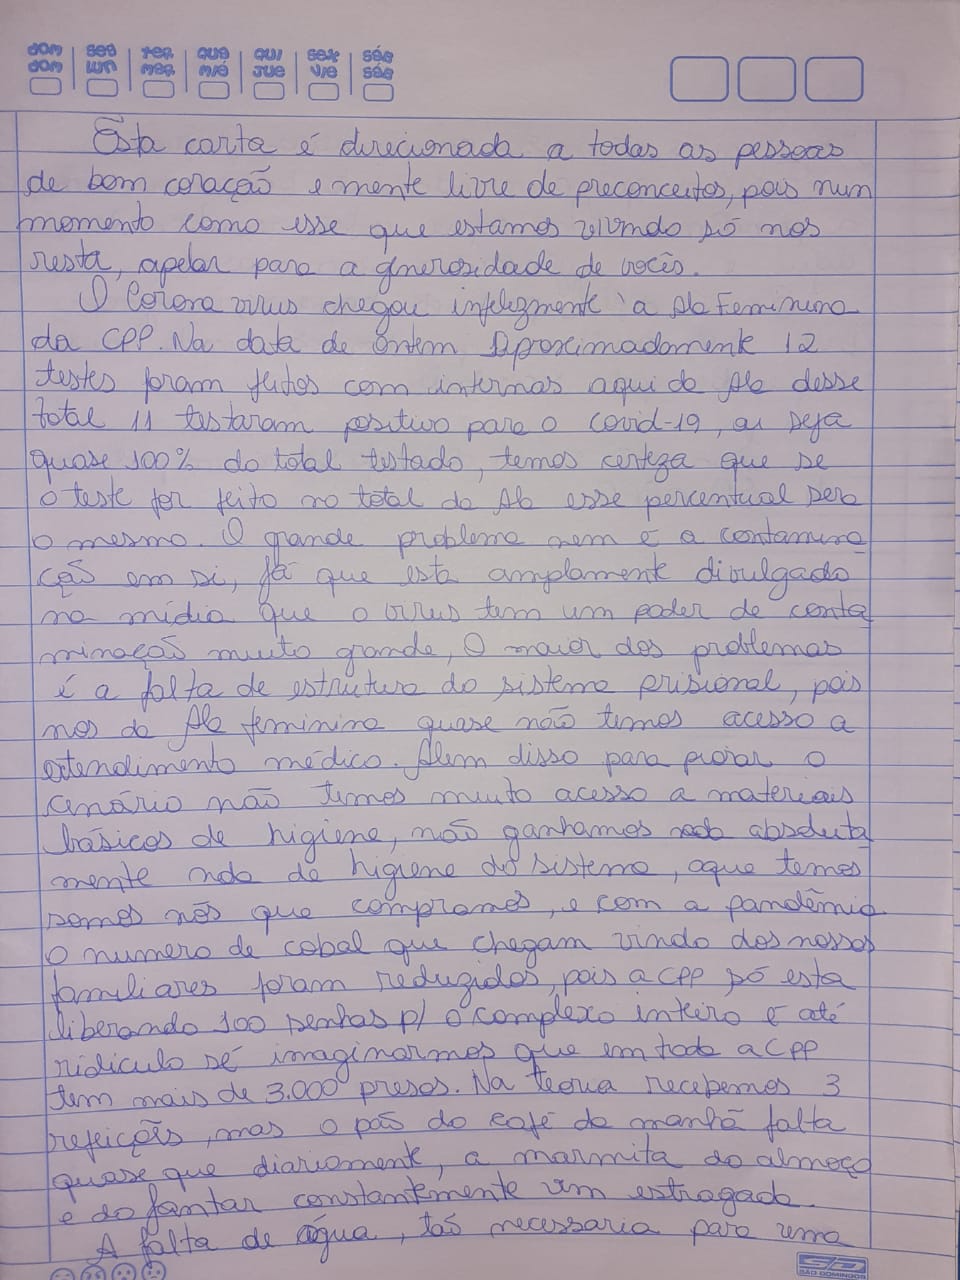 DOM SEG TER QUA QUI SEX SÁB
DOM LUN MAR MIÉ JUE VIE SÁB
Esta carta é direcionada a todas as pessoas
de bom coração e mente livre de preconceitos, pois num
momento como esse que estamos vivendo só nos
resta, apelar para a generosidade de vocês.
O Corona virus chegou infelizmente à Ala Feminina
da CPP. Na data de ontem Aproximadamente 12
testes foram feitos com internas aqui da Ala desse
total 11 testaram positivo para o covid-19, ou seja
quase 100% do total testado, temos certeza que se
o teste for feito no total da Ala esse percentual sera
o mesmo. O grande problema nem é a contamina
ção em si, já que esta amplamente divulgado
na mídia que o virus tem um poder de conta
minação muito grande, O maior dos problemas
é a falta de estrutura do sistema prisional, pois
nos da Ala feminina quase não temos acesso a
atendimento médico. Alem disso para piorar o
cenário não temos muito acesso a materiais
básicos de higiene, não ganhamos absoluta
mente nada de higiene do sistema, aque temos
somos nós que compramos, e com a pandêmia
o numero de cobal que chegam vindo dos nossos
familiares foram reduzidos, pois a CPP só esta
liberando 100 senhas p/ o complexo inteiro e até
ridiculo sé imaginarmos que em toda a CPP
tem mais de 3.000 presos. Na teoria recebemos 3
refeições, mas o pão do café da manhã falta
quase que diariamente, a marmita do almoço
e do jantar constantemente vem estragada.
A falta de água, tão necessaria para uma
SD
SÃO DOMINGOS